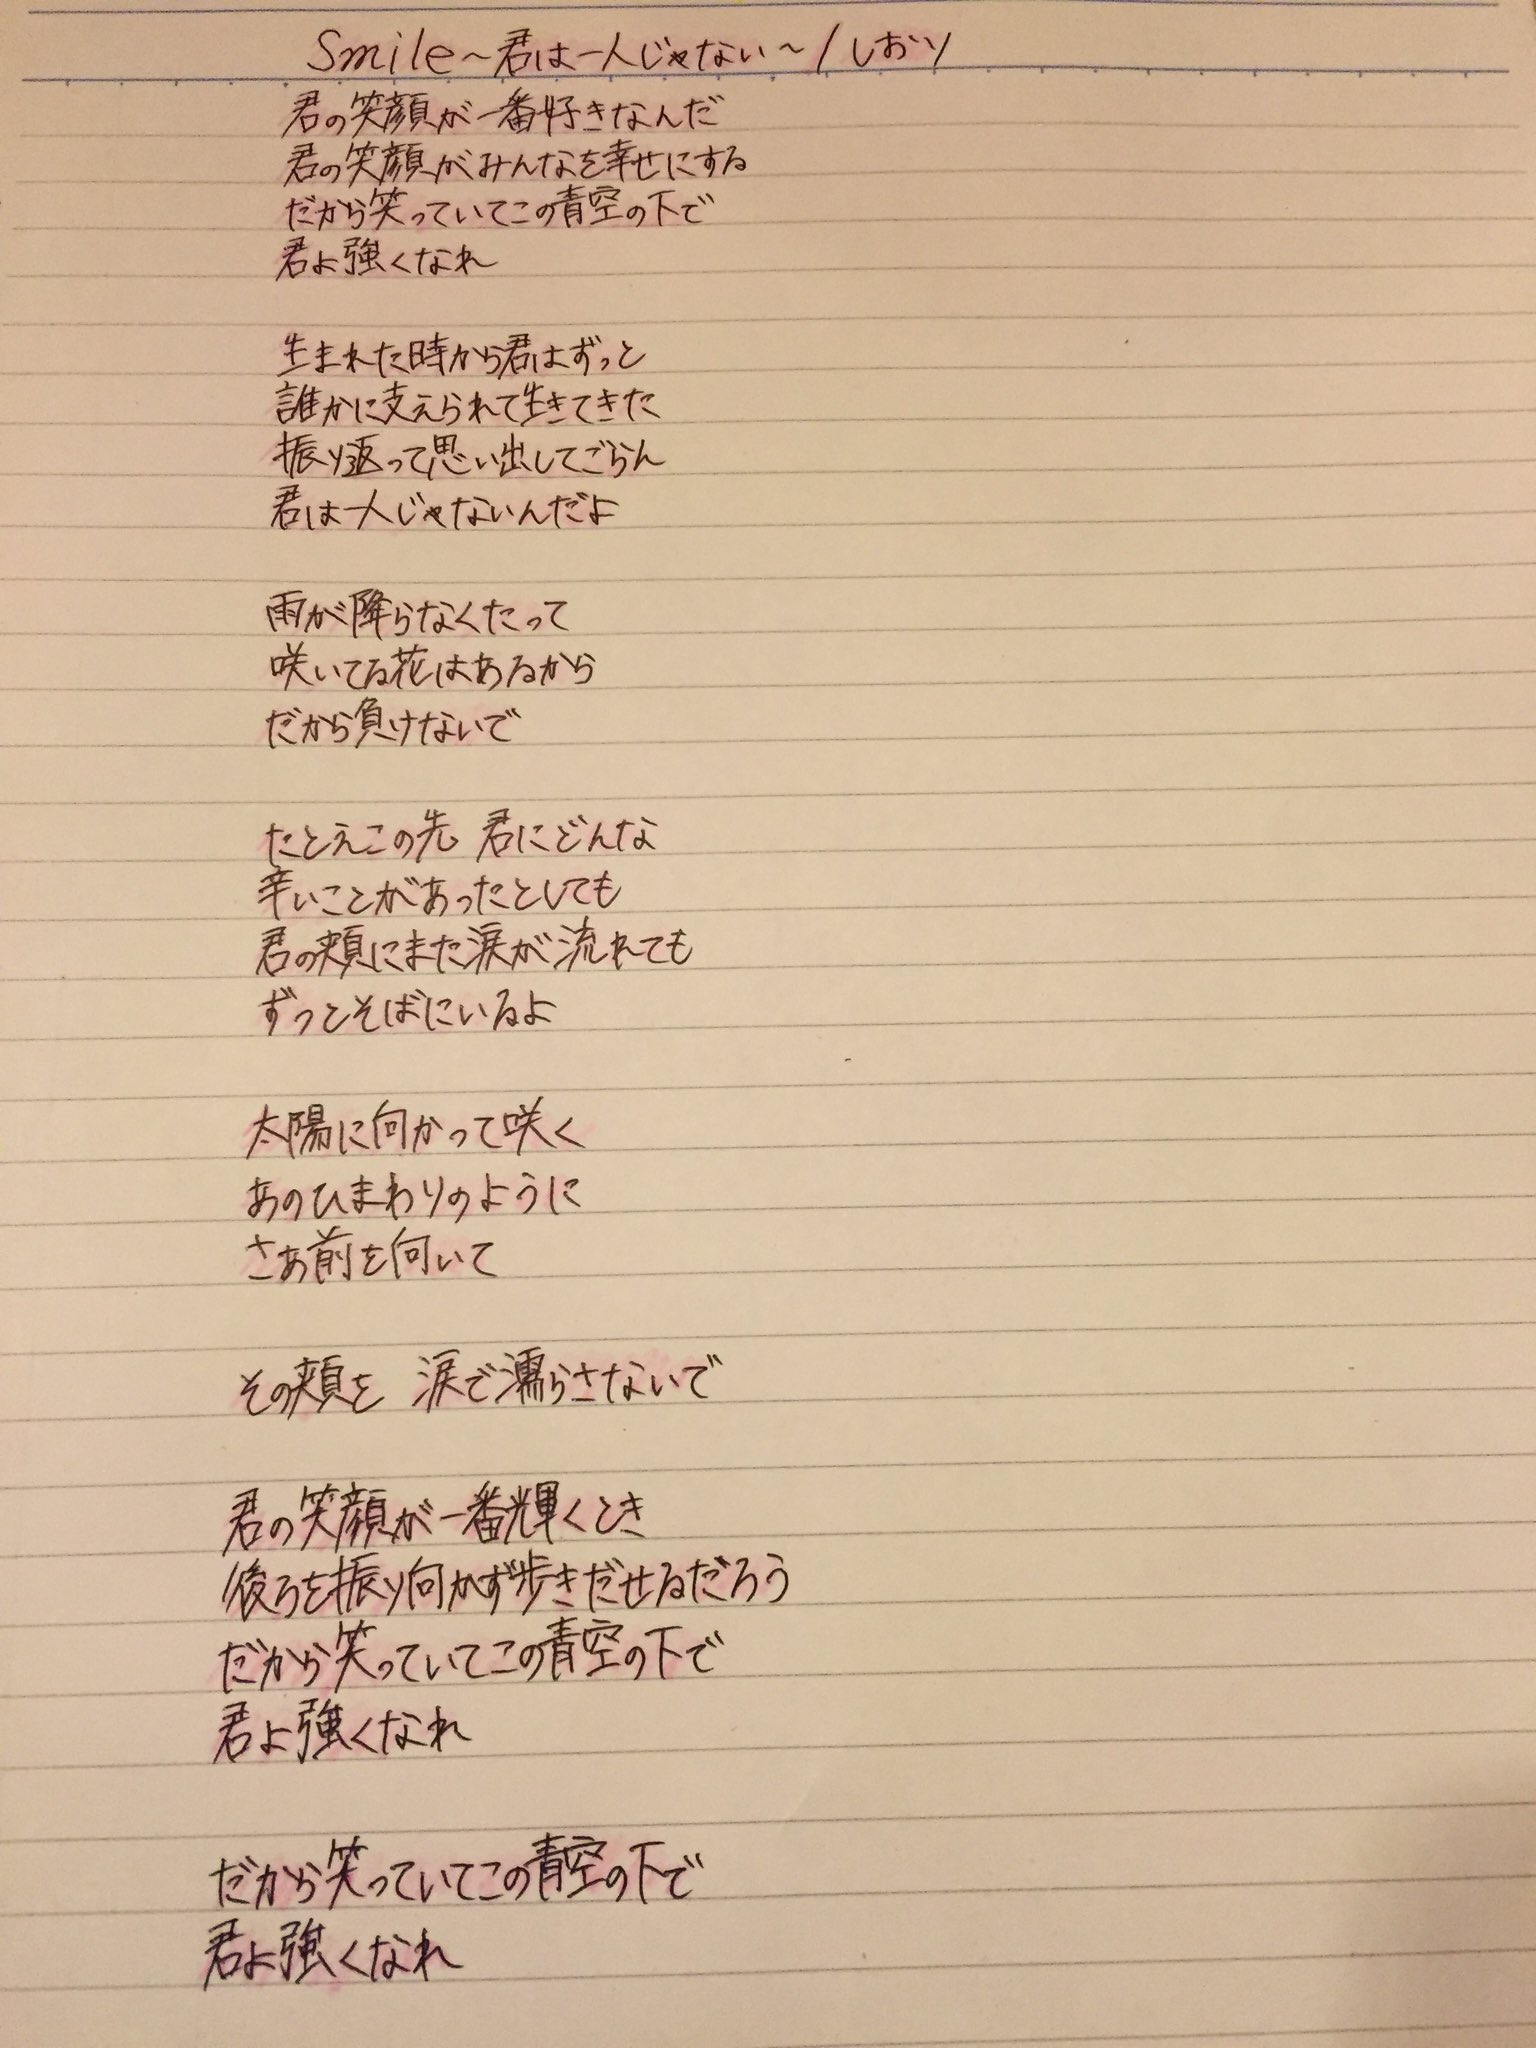 Smile～君は一人じゃない～/しおり
君の笑顔が一番好きなんだ
君の笑顔がみんなを幸せにする
だから笑っていてこの青空の下で
君よ強くなれ
生まれた時から君はずっと
誰かに支えられて生きてきた
振り返って思い出してごらん
君は一人じゃないんだよ
雨が降らなくたって
咲いてる花はあるから
だから負けないで
たとえこの先 君にどんな
辛いことがあったとしても
君の頬にまた涙が流れても
ずっとそばにいるよ
太陽に向かって咲く
あのひまわりのように
さあ前を向いて
その頬を 涙で濡らさないで
君の笑顔が一番輝くとき
後ろを振り向かず歩きだせるだろう
だから笑っていてこの青空の下で
君よ強くなれ
だから笑っていてこの青空の下で
君よ強くなれ